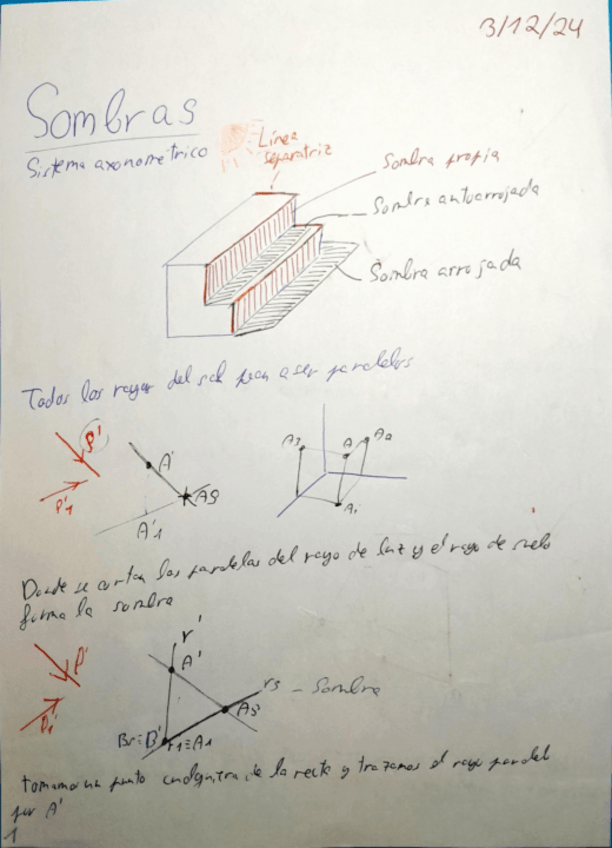 3/12/24
Sombras
Sistema axonometrico
Línea
separatriz
Sombra propia
Sombra autoarrojada
Sombra arrojada
Todos los rayos del sol van a ser paralelos
P'
P'1
A'
As
A'1
A3
A
A2
A1
Donde se cortan las paralelas del rayo de luz y el rayo de suelo
forma la sombra
P'
P1'
r'
A'
rs - Sombra
As'
Br≡B'
r1≡A1
tomamos un punto cualquiera de la recta y trazamos el rayo paralel
por A'
1